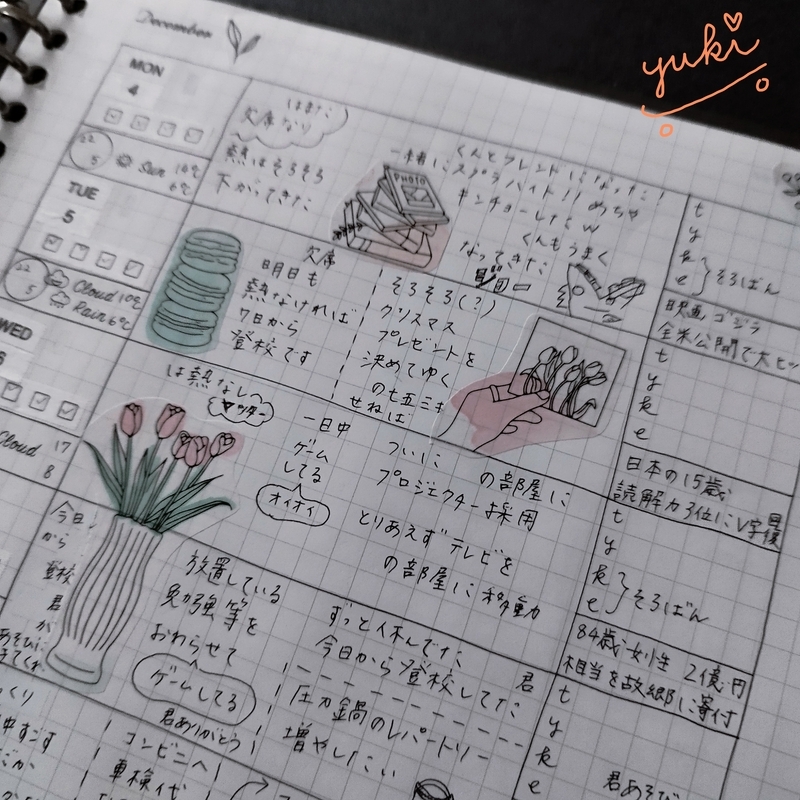 yuki
December
MON
4
はまだ
欠席なり
熱はそろそろ
下がってきた
一緒に
くんとフレンドになった!
スプラバイト!! めちゃ
キンチョーしたw
くんもうまく
なってきた
PHOTO
22
5
Sun 10℃
6℃
t
y
k
e
そろばん
映画 ゴジラ
全米公開で大ヒッ
TUE
5
欠席
明日も
熱なければ
7日から
登校です
そろそろ(?)
クリスマス
プレゼントを
決めてゆく
の七五三も
せねば
22
5
Cloud 10℃
Rain 6℃
t
y
k
e
日本の15歳
読解力3位にV字回復
WED
6
は熱なし
一日中
ゲーム
してる
オイオイ
ついに の部屋に
プロジェクター採用
とりあえずテレビを
の部屋に移動
Cloud 17
8
t
y
k
e
そろばん
84歳女性 2億円
相当を故郷に寄付
今日
から
登校
君
が
あそびに
きてくれ
放置している
勉強等を
おわらせて
ゲームしてる
君ありがとう
ずっと休んでた 君
今日から登校してた
圧力鍋のレパートリー
増やしたい
t
y
k
e
君あそび
コンビニへ
車検代